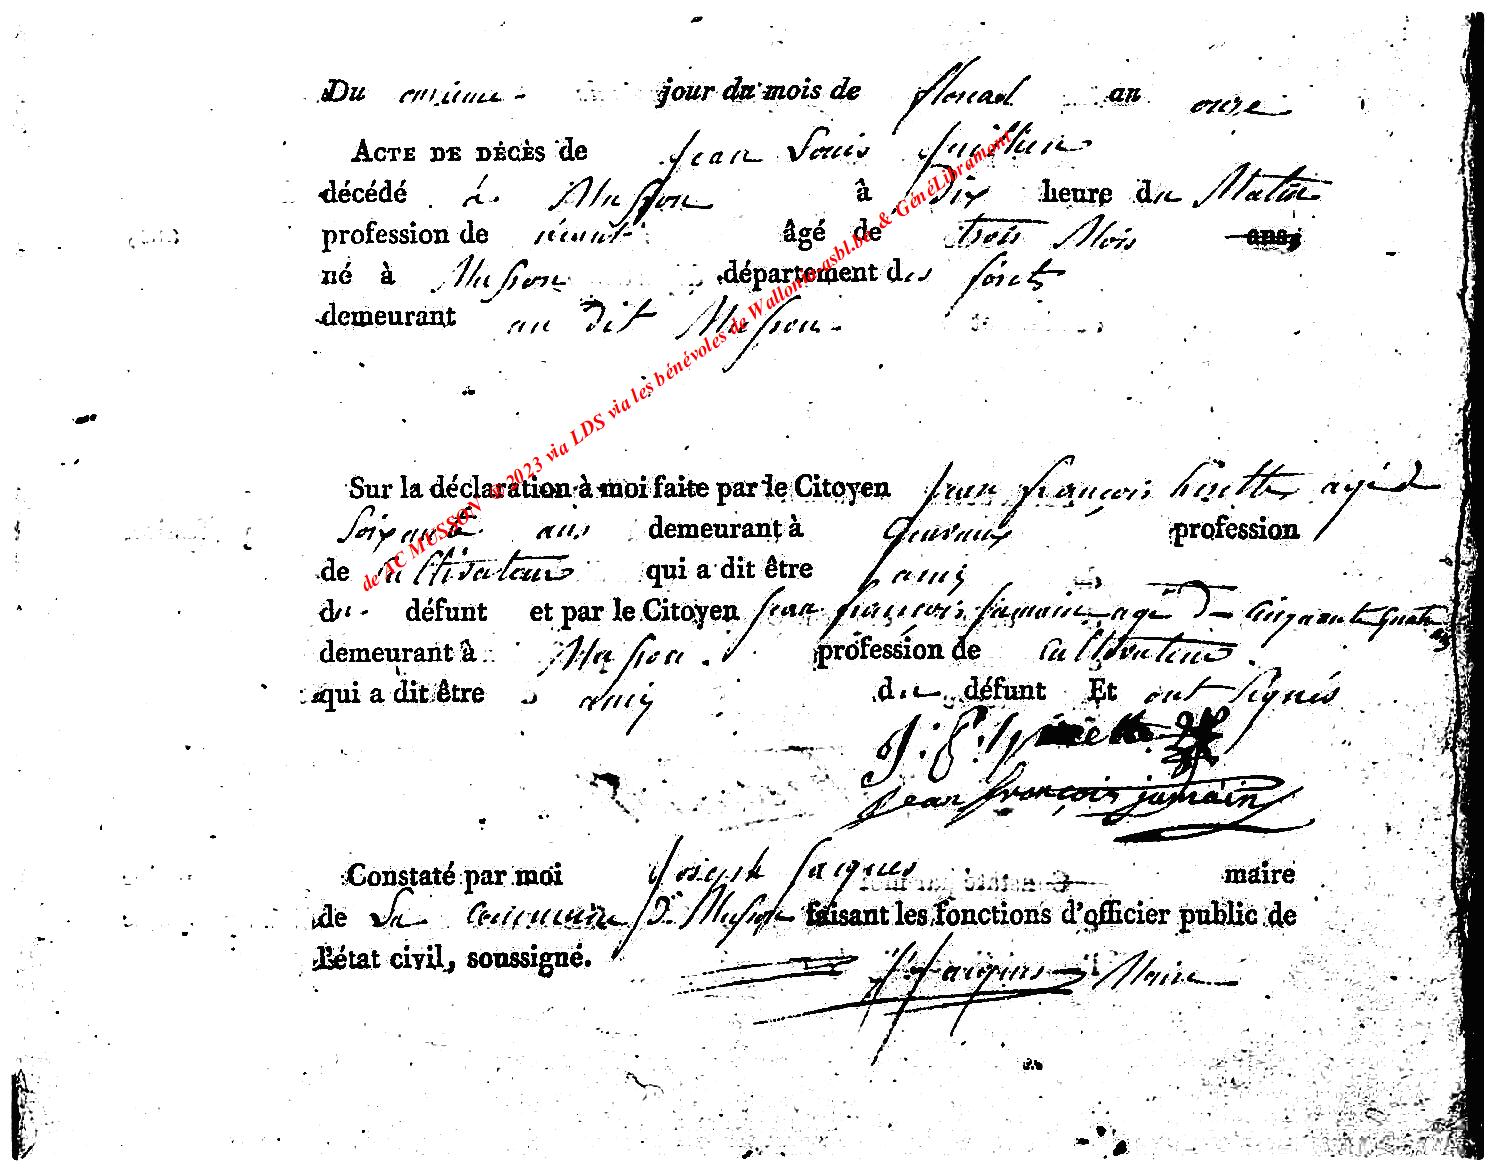 Du onzieme jour du mois de floreal an onze
ACTE DE DÉCÈS de Jean Louis Juillien
décédé à Musson à Dix heure du Matin
profession de néant âgé de trois Mois ans,
né à Musson département des forêts
demeurant au dit Musson.
Sur la déclaration à moi faite par le Citoyen Jean françois agé d
Soixante ans demeurant à profession
de Cultivateur qui a dit être amis
du défunt et par le Citoyen Jean françois Jamain agé De Cinquante quatre ans
demeurant à Musson. profession de Cultivateur.
qui a dit être amis du défunt Et ont Signés
jean françois jamain
Constaté par moi Joseph Jacques maire
de La Commune De Musson faisant les fonctions d'officier public de
l'état civil, soussigné.
J. Jacques Maire
de AC MUSSON 2023 via LDS via les bénévoles de Wallonia asbl.be & GénéLibramont